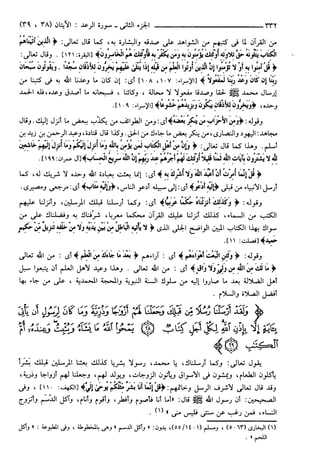 ٣٣٢ الجزء الثانى - سورة الرعد : الآيتان (٣٨ ، ٣٩)
من القرآن لما فى كتبهم من الشواهد على صدقه والبشارة به، كما قال تعالى: ﴿ الَّذِينَ آتَيْنَاهُمُ
الْكِتَابَ يَتْلُونَهُ حَقَّ تِلَاوَتِهِ أُولَٰئِكَ يُؤْمِنُونَ بِهِ وَمَن يَكْفُرْ بِهِ فَأُولَٰئِكَ هُمُ الْخَاسِرُونَ﴾ [البقرة: ١٢١] . وقال تعالى:
﴿ قُلْ آمِنُوا بِهِ أَوْ لَا تُؤْمِنُوا إِنَّ الَّذِينَ أُوتُوا الْعِلْمَ مِن قَبْلِهِ إِذَا يُتْلَىٰ عَلَيْهِمْ يَخِرُّونَ لِلْأَذْقَانِ سُجَّدًا . وَيَقُولُونَ سُبْحَانَ
رَبِّنَا إِن كَانَ وَعْدُ رَبِّنَا لَمَفْعُولًا ﴾ [الإسراء: ١٠٧، ١٠٨] أى: إن كان ما وعدنا الله به فى كتبنا من
إرسال محمد ﷺ لحقا وصدقا مفعولا لا محالة ، وكائنا ، فسبحانه ما أصدق وعده، فله الحمد
وحده، ﴿وَيَخِرُّونَ لِلْأَذْقَانِ يَبْكُونَ وَيَزِيدُهُمْ خُشُوعًا﴾ [الإسراء: ١٠٩].
وقوله: ﴿وَمِنَ الْأَحْزَابِ مَن يُنكِرُ بَعْضَهُ﴾ أى: ومن الطوائف من يكذب ببعض ما أنزل إليك. وقال
مجاهد: اليهود والنصارى، من ينكر بعض ما جاءك من الحق. وكذا قال قتادة، وعبد الرحمن بن زيد بن
أسلم. وهذا كما قال تعالى: ﴿ وَإِنَّ مِنْ أَهْلِ الْكِتَابِ لَمَن يُؤْمِنُ بِاللَّهِ وَمَا أُنزِلَ إِلَيْكُمْ وَمَا أُنزِلَ إِلَيْهِمْ خَاشِعِينَ
لِلَّهِ لَا يَشْتَرُونَ بِآيَاتِ اللَّهِ ثَمَنًا قَلِيلًا أُولَٰئِكَ لَهُمْ أَجْرُهُمْ عِندَ رَبِّهِمْ إِنَّ اللَّهَ سَرِيعُ الْحِسَابِ﴾ [آل عمران: ١٩٩].
﴿ قُلْ إِنَّمَا أُمِرْتُ أَنْ أَعْبُدَ اللَّهَ وَلَا أُشْرِكَ بِهِ ﴾ أى : إنما بعثت بعبادة الله وحده لا شريك له، كما
أرسل الأنبياء من قبلى ﴿إِلَيْهِ أَدْعُو﴾ أى : إلى سبيله أدعو الناس، ﴿وَإِلَيْهِ مَآبِ﴾ أى: مرجعى ومصيرى.
وقوله: ﴿ وَكَذَٰلِكَ أَنزَلْنَاهُ حُكْمًا عَرَبِيًّا﴾ أى: وكما أرسلنا قبلك المرسلين، وأنزلنا عليهم
الكتب من السماء، كذلك أنزلنا عليك القرآن محكما معربا، شرفناك به وفضلناك على من
سواك بهذا الكتاب المبين الواضح الجلى الذى ﴿ لا يَأْتِيهِ الْبَاطِلُ مِنْ بَيْنِ يَدَيْهِ وَلَا مِنْ خَلْفِهِ تَنزِيلٌ مِّنْ حَكِيمٍ
حَمِيدٍ﴾ [فصلت: ٤٢].
وقوله: ﴿ وَلَئِنِ اتَّبَعْتَ أَهْوَاءَهُم ﴾ أى : آراءهم ﴿ بَعْدَ مَا جَاءَكَ مِنَ الْعِلْمِ ﴾ أى : من الله تعالى
﴿ مَا لَكَ مِنَ اللَّهِ مِن وَلِيٍّ وَلَا وَاقٍ﴾ أى : من الله تعالى . وهذا وعيد لأهل العلم أن يتبعوا سبل
أهل الضلالة بعد ما صاروا إليه من سلوك السنة النبوية والمحجة المحمدية ، على من جاء بها
أفضل الصلاة والسلام .
﴿ وَلَقَدْ أَرْسَلْنَا رُسُلًا مِّن قَبْلِكَ وَجَعَلْنَا لَهُمْ أَزْوَاجًا وَذُرِّيَّةً وَمَا كَانَ لِرَسُولٍ أَن يَأْتِيَ
بِآيَةٍ إِلَّا بِإِذْنِ اللَّهِ لِكُلِّ أَجَلٍ كِتَابٌ ﴿٣٨﴾ يَمْحُوا اللَّهُ مَا يَشَاءُ وَيُثْبِتُ وَعِندَهُ أُمُّ
الْكِتَابِ ﴿٣٩﴾ ﴾
يقول تعالى: وكما أرسلناك، يا محمد، رسولا بشريا كذلك بعثنا المرسلين قبلك بَشَرا
يأكلون الطعام، ويمشون فى الأسواق ويأتون الزوجات، ويولد لهم، وجعلنا لهم أزواجا وذرية،
وقد قال تعالى لأشرف الرسل وخاتمهم: ﴿قُلْ إِنَّمَا أَنَا بَشَرٌ مِّثْلُكُمْ يُوحَىٰ إِلَيَّ﴾ [الكهف: ١١٠] . وفى
الصحيحين: أن رسول الله ﷺ قال: «أما أنا فأصوم وأفطر، وأقوم وأنام، وآكل الدَّسَم وأتزوج
النساء، فمن رغب عن سنتى فليس منى » (١) .
(١) البخارى (٥٠٦٣) ، ومسلم (١٤٠١/٥)، بدون: «وآكل الدسم» وهى بالمخطوطة ، وفى المطبوعة : «وآكل
اللحم» .